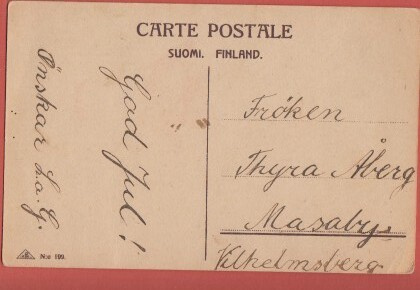 CARTE POSTALE
SUOMI. FINLAND.
God Jul!
Önskar L.a.G.
Fröken
Thyra Åberg
Masaby
Vilhelmsberg
N:o 199.